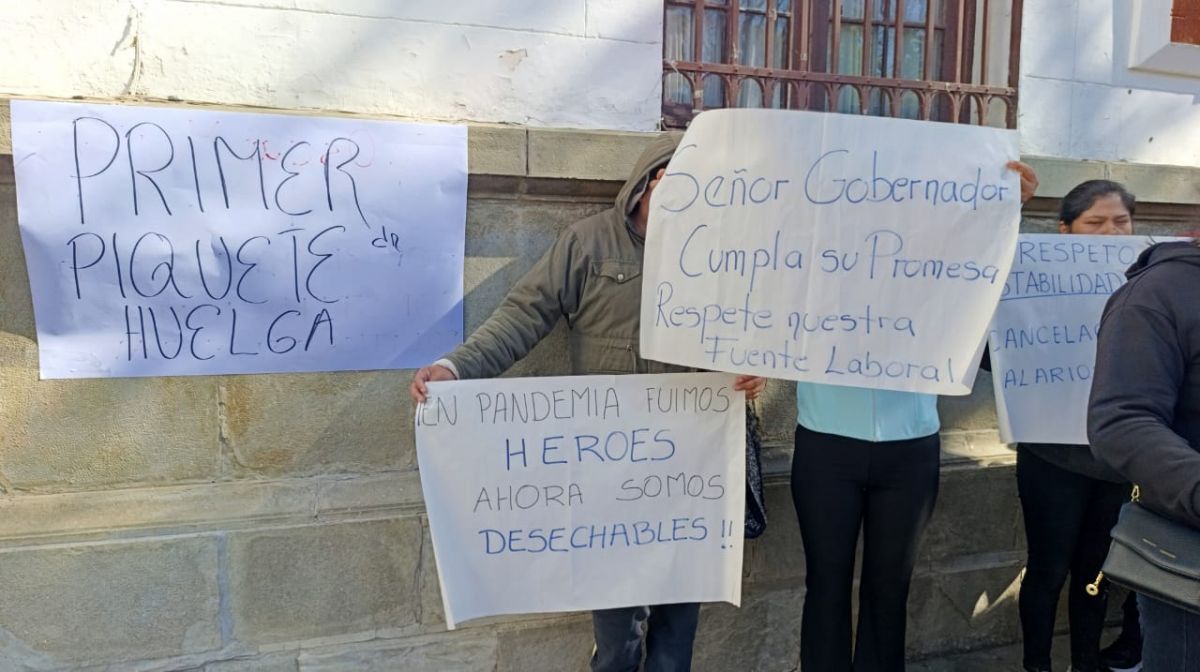 PRIMER
PIQUETE de
HUELGA
Señor Gobernador
Cumpla su Promesa
Respete nuestra
Fuente Laboral
EN PANDEMIA FUIMOS
HEROES
AHORA SOMOS
DESECHABLES !!
RESPETO